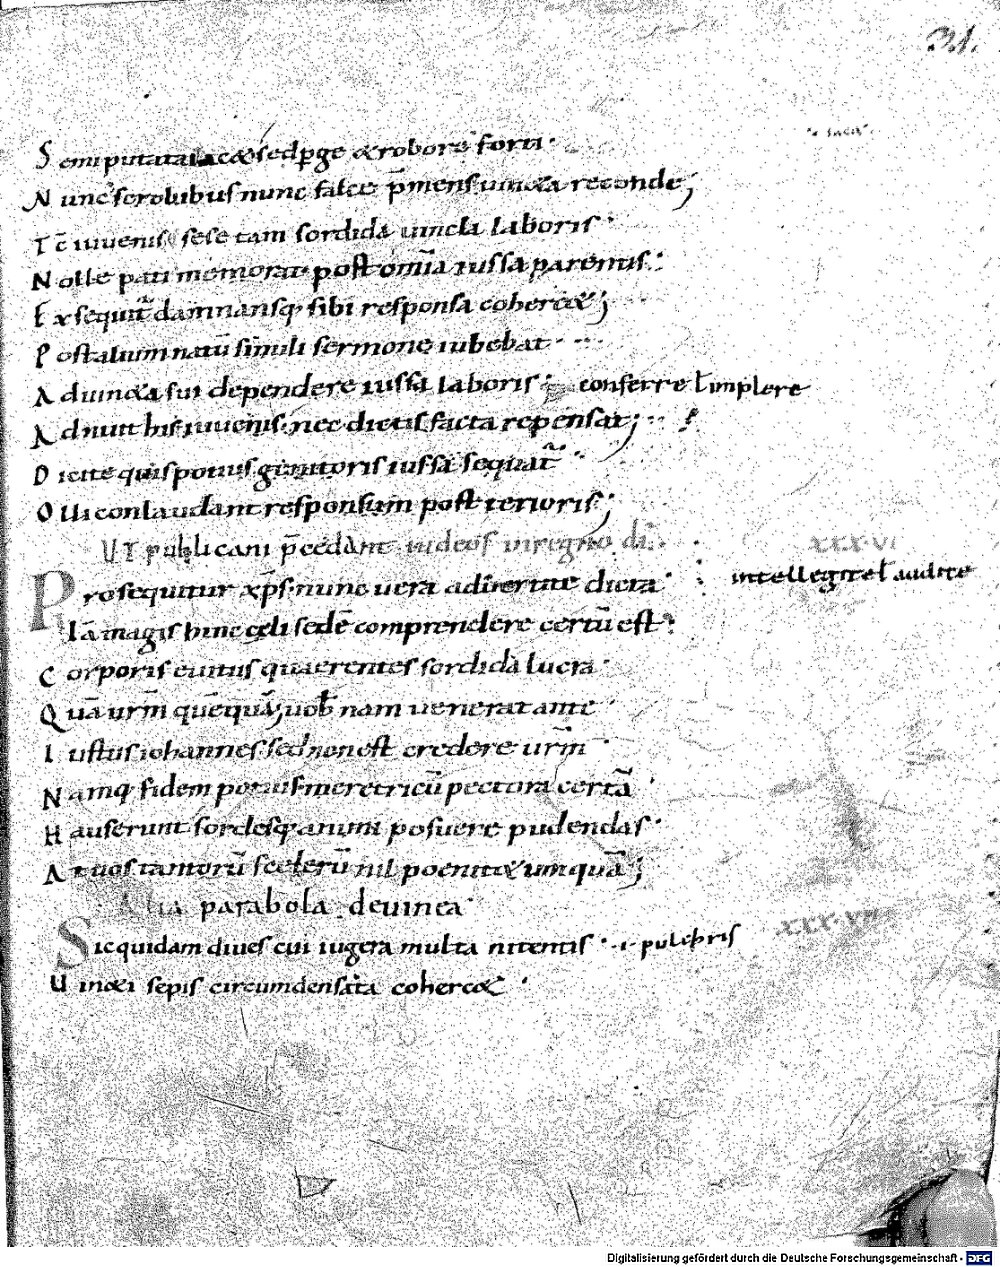 31.
Semiputata iacet sed p̄ge & robore forti·
Nunc scrobibus nunc falce p̄mens uin&a reconde;
Tc̄ iuuenis sese tam sordida uincla laboris·
Nolle pati memorat post om̄ia iussa parentis:
Exsequit̄ damnansq; sibi responsa coherc&;
Post alium natū simili sermone iubebat·
Ad uin&a sui dependere iussa laboris conferre ł implere
Adnuit his iuuenis· nec dictis facta repensat;
Dicite quis potius genitoris iussa sequat̄·
Olli conlaudant responsum posterioris;
UT publicani p̄cedant iudeos in regno dī· XXXVI
Prosequitur xp̄s· nunc uera aduertite dicta· intellegite ł audite
Iā magis hinc celi sedē comprendere certū est
Corporis euictus quaerentes sordida lucra·
Quā urm̄ quēquā; uob̄ nam uenerat ante·
Iustus iohannes sed non est credere urm̄·
Namq; fidem potius meretricū pectora certā·
Hauserunt sordesq; animi posuere pudendas·
At uos tantorū scelerū nil poenit& umquā;
Alia parabola de uinea· XXXVII
Sic quidam diues cui iugera multa nitentis ·i· pulchris
Uin&i sepis circumdensata coherc&·
Digitalisierung gefördert durch die Deutsche Forschungsgemeinschaft - DFG